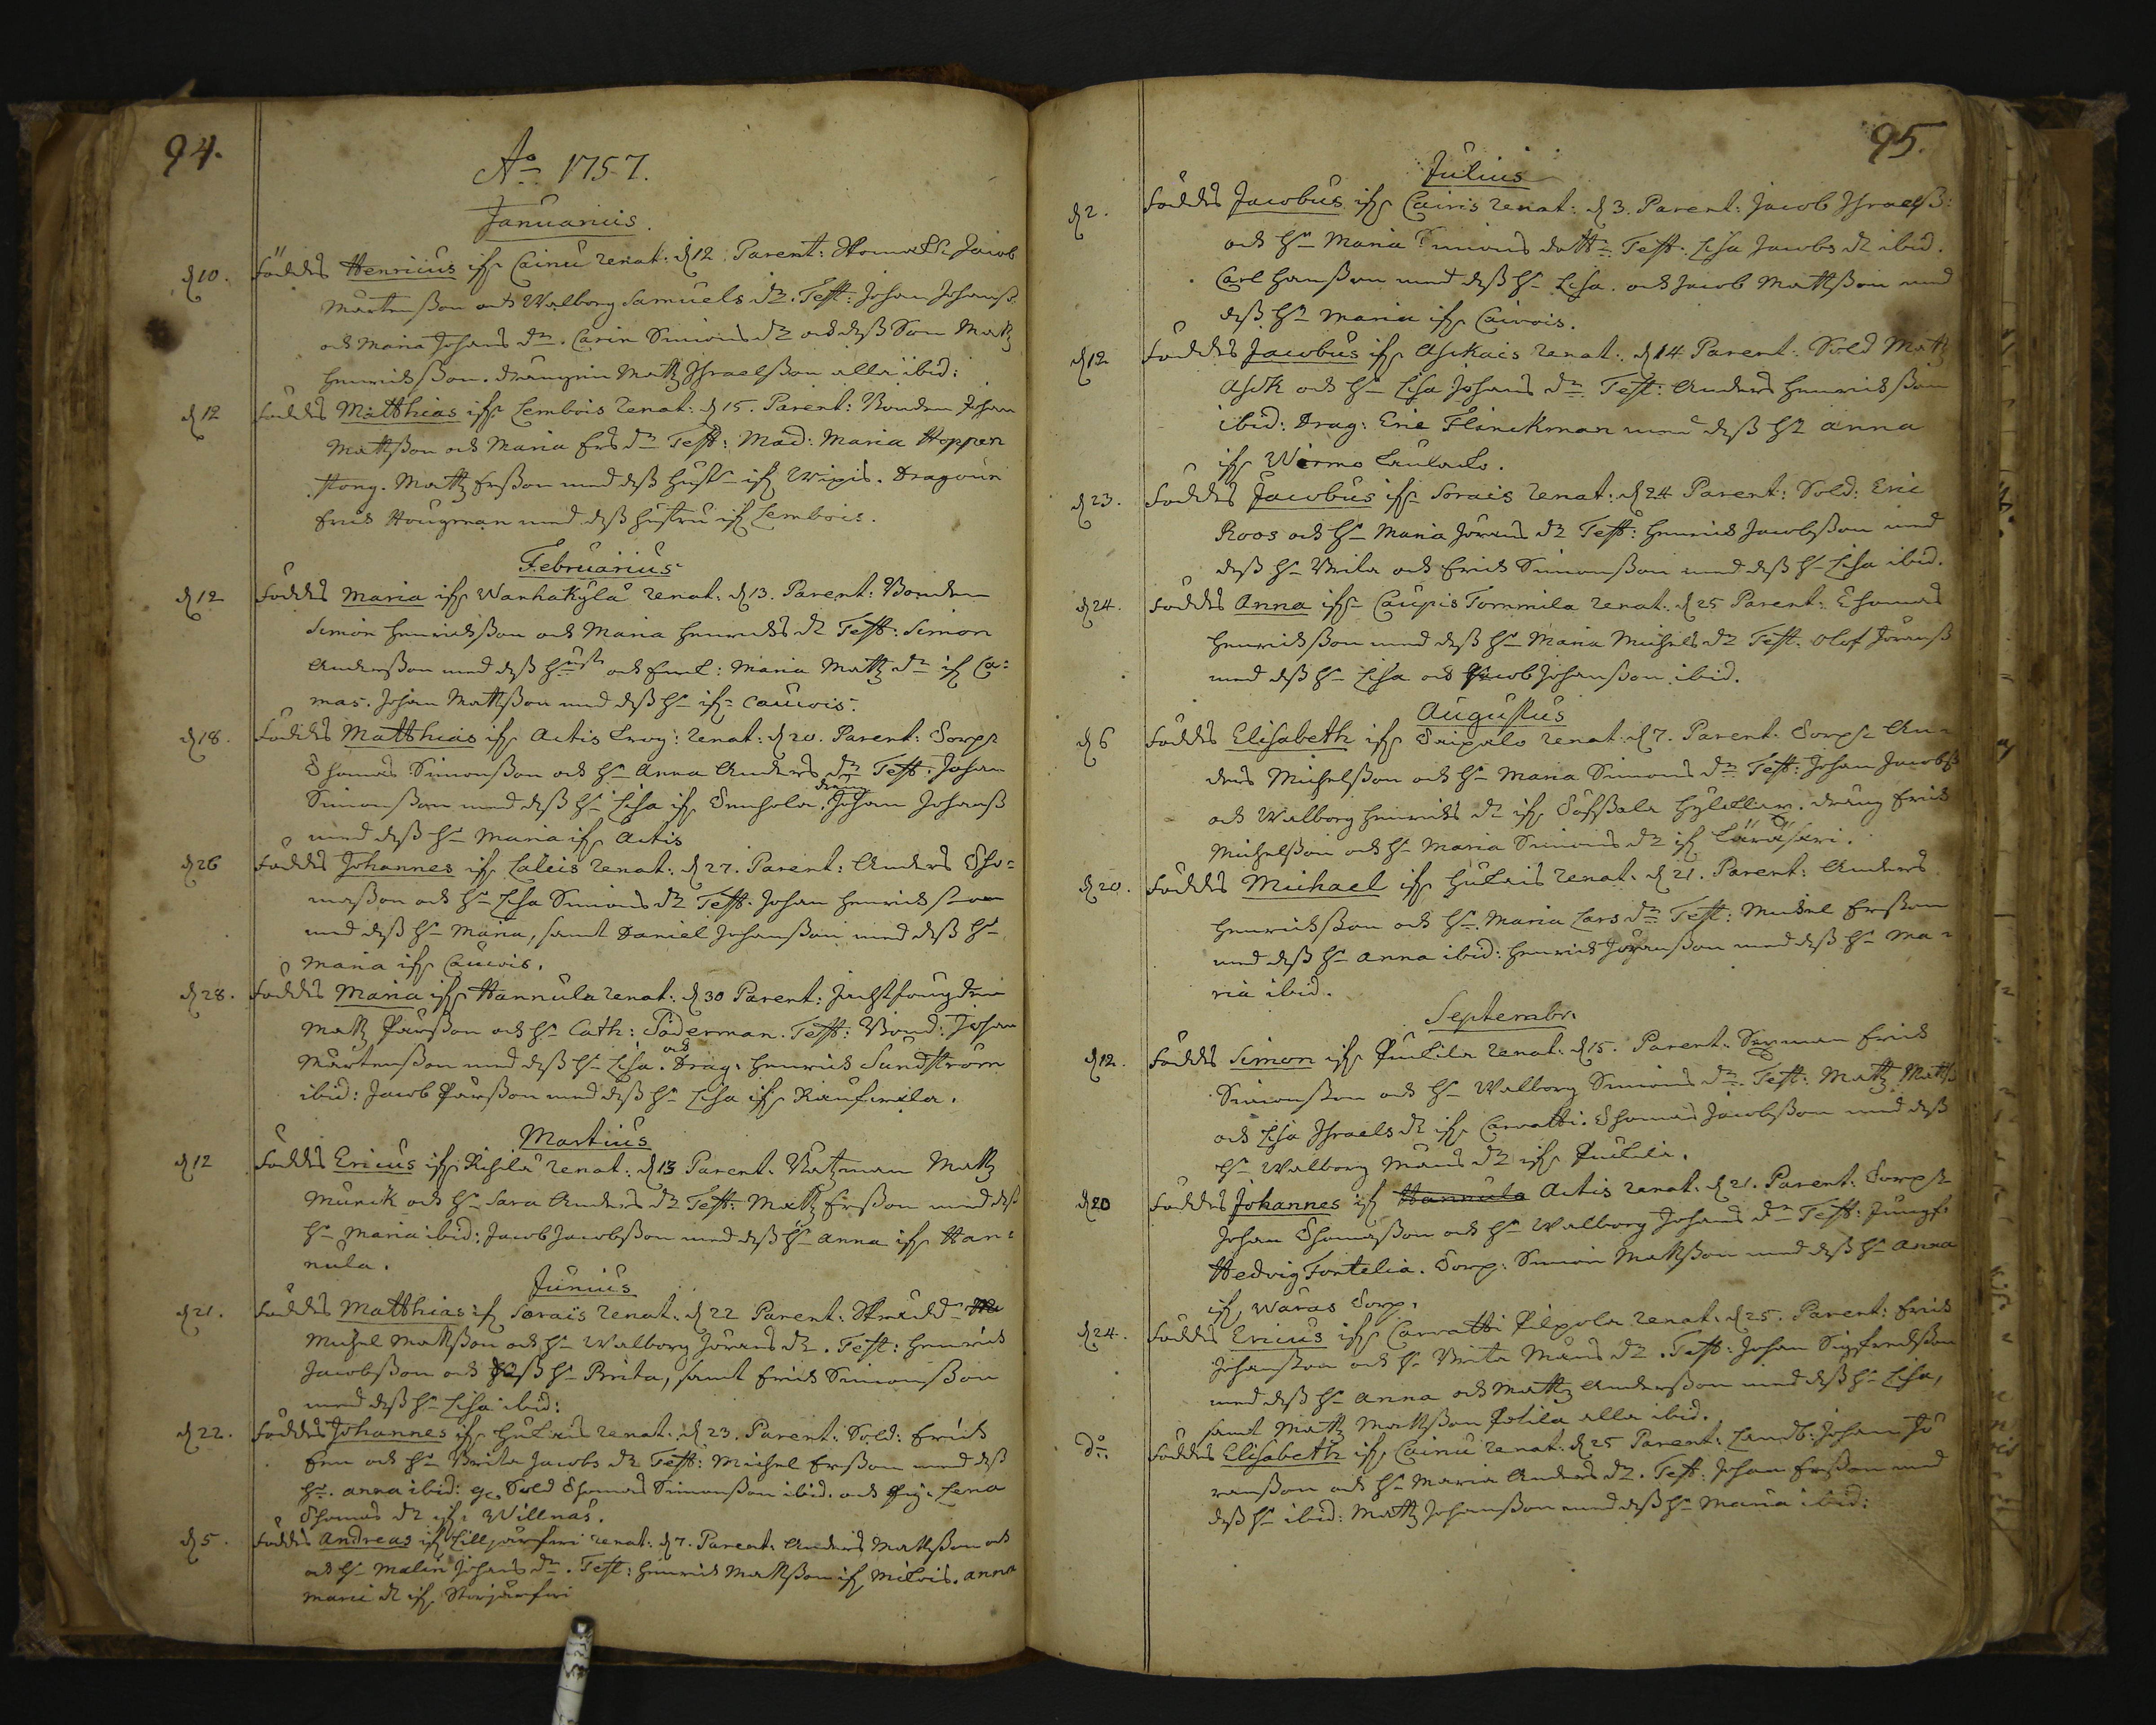 94.
Ao 1757.
Januarius.
d 10. Föddes Henricus ifr. Cainu renat: d 12. Parent: Jacob
Mårtensson och Walborg Samuels dr. Test: Johan Johanss.
och Maria Johans dr. Carin Simons dr och dess Son Matz
Henricksson. drängen Matz Israelsson alla ibid:
d 12 Föddes Matthias ifr. Lembois renat: d 15. Parent: Bonden Johan
Mattsson och Maria Ers dr Test: Mad: Maria Hoppen
stong. Matz Ersson med dess Hust ifr Wigis. Dragoun
Erick Hougman med dess hustru ifr Lembois.
Februarius
d 12 Föddes Maria ifr. Wanhakÿlå renat: d 13. Parent: Bonden
Simon Henricksson och Maria Henricks dr Test: Simon
Andersson med dess Hust och Enk: Maria Matz dr ifr Ca=
mas. Johan Mattsson med dess Hu ifr Cauvois.
d 18. Föddes Matthias ifr. Actis Torp: renat: d 20. Parent: Torpr
Thomas Simonsson och Hu Anna Anders dr Test: Johan
Simonsson med dess Hu Lisa ifr Tenhola. dräng Johan Johanss
med dess Hu Maria ifr Actis
d 26 Föddes Johannes ifr Caleis renat: d 27. Parent: Anders Tho=
masson och Hu Lisa Simons dr Test: Johan Henricksson
med dess Hu Maria, samt Daniel Johansson med dess Hu
Maria ifr Cauvois.
d 28. Föddes Maria ifr Hannula renat: d 30 Parent: Jachtfougden
Matz Pärsson och Hu Cath: Söderman. Test: Bond: Johan
Mårtensson med dess Hu Lisa. och Drag: Henrick Sundström
ibid: Jacob Pärsson med dess Hu Lisa ifr
Martius
d 12 Föddes Ericus ifr. Risilå renat: d 13 Parent: Båtzman Matz
Munck och Hu Sara Anders dr Test: Matz Ersson med dess
Hu Maria ibid: Jacob Jacobsson med dess Hu Anna ifr Han=
nula.
Junius
d 21. Föddes Matthias ifr Sorais renat: d 22 Parent:
Michel Mattsson och Hu Walborg Jörans dr. Test: Henrick
Jacobsson och dess Hu Brita, samt Erick Simonsson
med dess Hu Lisa ibid:
d 22. Föddes Johannes ifr Hukais renat: d 23. Parent: Sold: Erick
Een och Hu Brita Jacobs dr Test: Michel Ersson med dess
Hu. Anna ibid: Sold Thomas Simonsson ibid. och Pig: Lena
Thomas dr ifr Willnäs.
d 5. Föddes Andreas ifr Lilljärfwi renat: d 7. Parent: Anders Mattsson och
och Hu Malin Johans dr. Test: Henrick Mattsson ifr Mikois. Anna
Mari dr ifr. Storjärfwi
95.
Julius
d 2. Föddes Jacobus ifr Cairis renat: d 3. Parent: Jacob Israelss:
och Hu Maria Simons dottr: Test: Lisa Jacobs dr ibid.
Carl Hansson med dess Hu Lisa. och Jacob Mattsson med
dess Hu Maria ifr Cairois.
d 12 Föddes Jacobus ifr Asckais renat: d 14 Parent: Sold Matz
Asck och Hu Lisa Johans dr Test: Anders Henricksson
ibid: Drag: Eric Flinckman med dess Hu Anna
ifr Wirmo Laukola.
d 23. Föddes Jacobus ifr Sorais renat: d 24 Parent: Sold: Eric
Roos och Hu Maria Jörans dr Test: Henrick Jacobsson med
dess Hu Brita och Erick Simonsson med dess Hu Lisa ibid.
d 24. Föddes Anna ifr Caupis Tommila renat: d 25 Parent: Thomas
Henricksson med dess Hu Maria Michels dr Test: Olof Jöranss
med dess Hu Lisa och Jacob Johansson ibid.
Augustus
d 6 Föddes Elisabeth ifr Taipalo renat: d 7. Parent: Torpr An=
ders Michelsson och Hu Maria Simons dr Test: Johan Jacobss
och Walborg Henricks dr ifr dräng Erick
Michelsson och Hu Maria Simons dr ifr
d 20. Föddes Michael ifr Hukais renat: d 21. Parent: Anders
Henricksson och Hu. Maria Lars dr Test: Mickel Ersson
med dess Hu Anna ibid: Henrick Jöransson med dess Hu Ma=
ria ibid.
Septembr.
d 12. Föddes Simon ifr Puckila renat: d 15. Parent: Erick
Simonsson och Hu Walborg Simons dr. Test: Matz Matts
och Lisa Israels dr ifr Carvatti. Thomas Jacobsson med dess
Hu Walborg Måns dr ifr Puckila.
d 20 Föddes Johannes ifr Hannula Actis renat: d 21. Parent: Torpr
Johan Thomasson och Hu Walborg Johans dr Test: Jungf:
Hedvig Fortelia. Torp: Simon Mattsson med dess Hu Anna
ifr Waras Torp.
d 24. Föddes Ericus ifr Carvatti Pilpola renat: d 25. Parent: Erick
Johansson och Hu Brita Måns dr. Test: Johan Sigfredsson
med dess Hu Anna och Matz Andersson med dess Hu Lisa,
samt Matz Mattsson alla ibid.
do Föddes Elisabeth ifr Cainu renat: d 25 Parent: Landb: Johan Jö
ransson och Hu Maria Anders dr. Test: Johan Ersson med
dess Hu ibid: Matz Johansson med dess Hu Maria ibid: